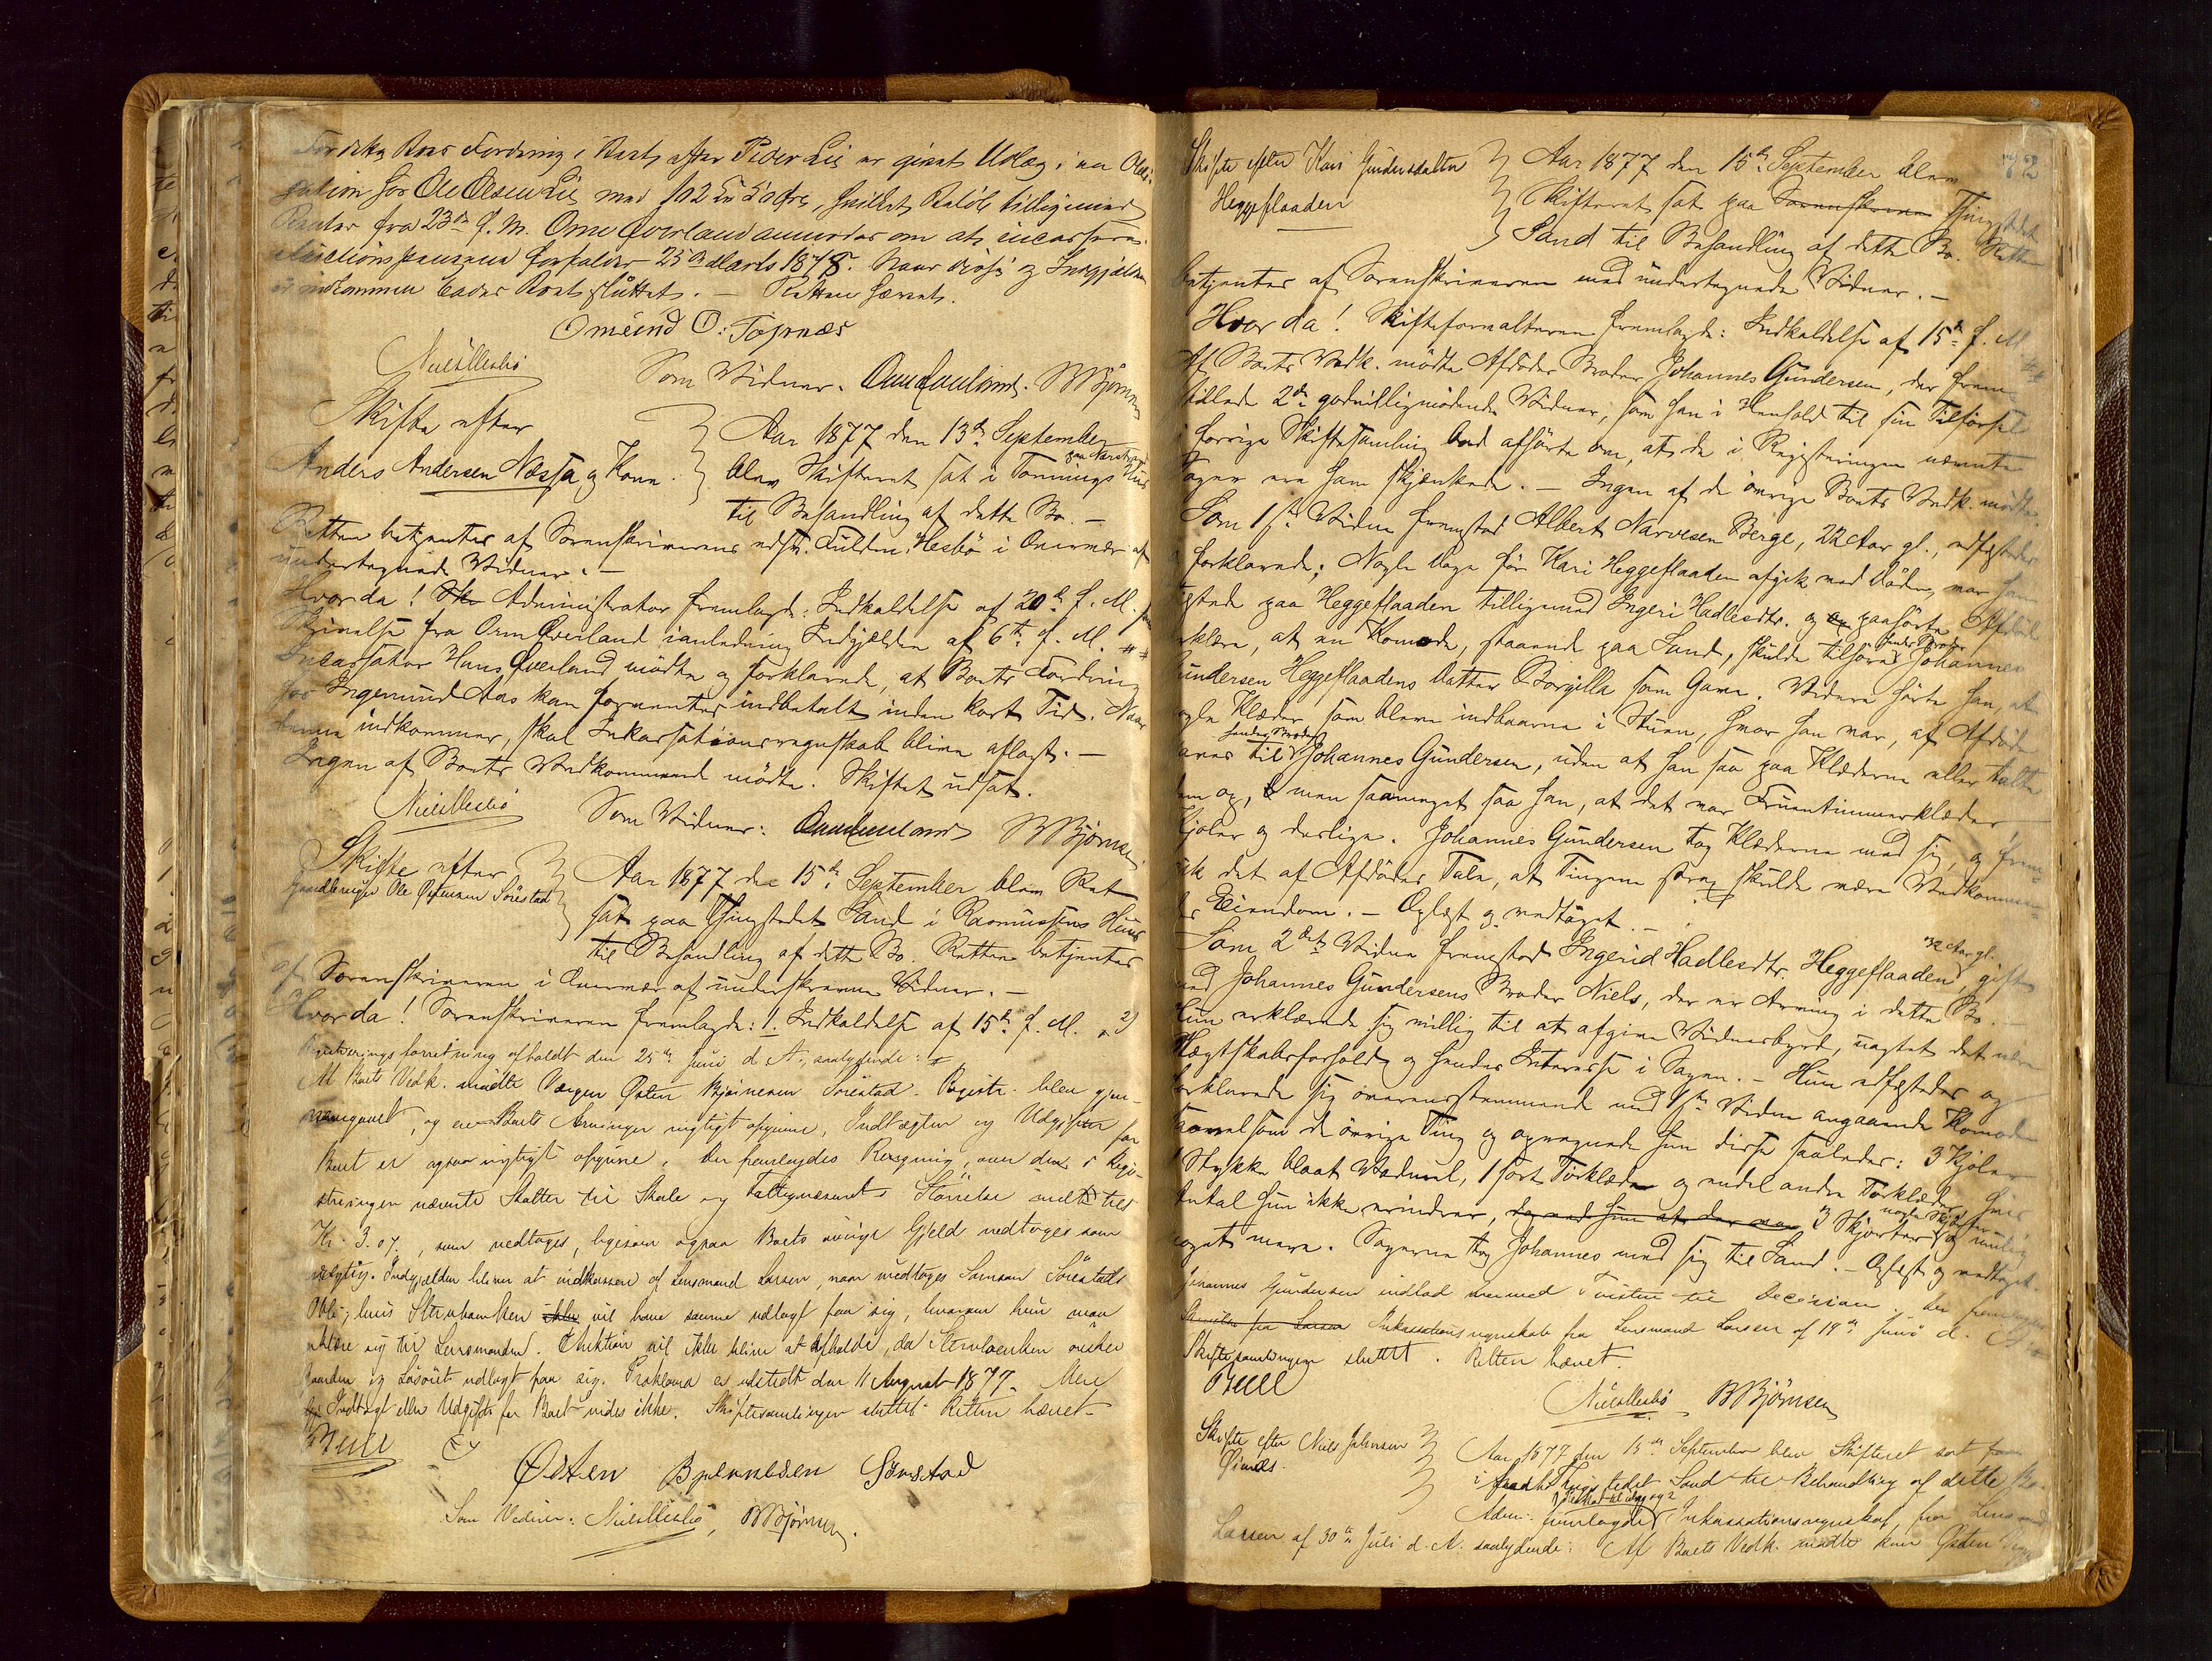 For dette Boes Fordring i Boet efter Peder Lie er givet Udlæg i en Obli-
gation hos Ole Olsen Lie med 102 Kr 50 Øre, hvilket Beløb tilligemed
Renter fra 23de f. M. Orm Øverland anmodes om at incassere.
Auctionspengene forfalder 25de Marts 1878. Naar disse og Indgjælden
er indkommen bedes Boet sluttet. — Retten hævet.
Omund O: Topnæs
Niels Hesbö
Som Vidner. Orm Øverland. B Björnsen
Skifte efter
Anders Andersen Næssa og Kone.
Aar 1877 den 13de September
blev Skifteret sat i Tønnings Huus paa Nærstrand
til Behandling af dette Bo. —
Retten betjentes af Sorenskriverens edsv. Fuldm. Hesbö i Overvær af
undertegnede Vidner. —
Hvor da! Administrator fremlagde: Indkaldelse af 20de f. M. samt
Skrivelse fra Orm Øverland ianledning Indgjælden af 6te f. M. ##
Incassator Hans Øverland mødte og forklarede, at Boets Fordring
hos Ingemund Aas kan forventes indbetalt inden kort Tid. Naar
denne indkommer, skal Inkassationsregnskab blive aflagt. —
Ingen af Boets Vedkommende mødte. Skiftet udsat.
Niels Hesbö
Som Vidner: Orm Øverland B Björnsen
Skifte efter
Gaardbruger Ole Østensen Sörestad
Aar 1877 den 15de September blev Ret
sat paa Thingstedet Sand i Rasmussens Huus
til Behandling af dette Bo. Retten betjentes
af Sorenskriveren i Overvær af underskrevne Vidner. —
Hvor da! Sorenskriveren fremlagde: 1. Indkaldelse af 15de f. M. # 2)
Registreringsforretning afholdt den 25de Juni d. A., saalydende: #
Af Boets Vedk. mødte Værgen Østen Bjørnesen Sörestad. Registr. blev gjen-
nemgaaet, og ere Boets Arvinger rigtigt opgivne, Indtægter og Udgifter for
Boet er ogsaa rigtigt opgivne. Der fremlagdes Regning over den i Regi-
streringen nævnte Skatter til Skole og Fattigvæsenets Størrelse med til
Kr. 3.07., som vedtoges, ligesom ogsaa Boets øvrige Gjæld vedtoges som
rigtig. Indgjælden bliver at indkassere af Lensmand Larsen, naar undtages Samson Sörestads
Obl.; hvis Stervboenken vil have samme udlagt paa sig, hvorom hun maa
erklære sig til Lensmanden. Auktion vil ikke blive at afholde, da Stervboenken ønsker
Gaarden og Løsøret udlagt paa sig. Proklama er udstedt den 11 August 1877. Mere
Indtægt eller Udgift for Boet vides ikke. Skiftesamlingen sluttet. Retten hævet.
Bull
Østen Bjernesen Sörestad
Som Vidner: Niels Hesbö, B Björnsen.
72
Skifte efter Kari Gundersdatter
Heggeflaaden
Aar 1877 den 15de September blev
Skifteret sat paa Sorenskriver Thingstedet
Sand til Behandling af dette Bo. Retten
betjentes af Sorenskriveren med undertegnede Vidner. —
Hvor da! Skifteforvalteren fremlagde: Indkaldelse af 15de f. M. ##
Af Boets Vedk. mødte Afdødes Broder Johannes Gundersen, der frem-
stillede 2de godvilligmødende Vidner, som han i Henhold til sin Tilførsel
i forrige Skiftesamling bad afhørte om, at de i Registreringen nævnte
Sager ere ham skjænkede. — Ingen af de øvrige Boets Vedk. mødte.
Som 1ste Vidne fremstod Albert Narvesen Berge, 22 Aar gl., edfæstedes
forklarede: Nogle Dage før Kari Heggeflaaden afgik ved Døden, var han
tilstede paa Heggeflaaden tilligemed Ingeri Hadlesdtr. og paahørte Afdøde
erklære, at en Komode, staaende paa Sand, skulde tilhøre hendes Broder Johannes
Gundersen Heggeflaadens Datter Borgilla som Gave. Videre hørte han, at
nogle Klæder, som bleve indbaarne i Stuen, hvor han var, af Afdøde
gaves til hendes Broder Johannes Gundersen, uden at han saa paa Klæderne eller talte
dem op, men saameget saa han, at det var Fruentimmerklæder,
Kjoler og deslige. Johannes Gundersen tog Klæderne med sig, og frem-
gik det af Afdødes Tale, at Tingene skulde være Vedkommen-
des Eiendom. — Oplæst og vedtaget. —
Som 2det Vidne fremstod Ingerid Hadlesdtr. Heggeflaaden, 32 Aar gl. gift
med Johannes Gundersens Broder Niels, der er Arving i dette Bo. —
Hun erklærede sig villig til at afgive Vidnesbyrd, uagtet det nære
Slægtskabsforhold og hendes Interesse i Sagen. — Hun edfæstedes og
forklarede sig overensstemmende med 1ste Vidne angaaende Komoden
saavelsom de øvrige Ting og opregnede hun disse saaledes: 3 Kjoler
1 Stykke blaat Vadmel, 1 sort Tørklæde og endel andre Tørklæder hvis
Antal hun ikke erindrer, dog ved hun at der var 3 Skjorter nogle Skjorter og mulig
noget mere. Sagerne tog Johannes med sig til Sand. — Oplæst og vedtaget.
Johannes Gundersen indlod hermed Tvisten til Decision. Der fremlagdes
Skrivelse fra Larsen Inkassationsregnskab fra Lensmand Larsen af 19de Juni d. A.
Skiftesamlingen sluttet. Retten hævet.
Bull
Niels Hesbö B Björnsen
Skifte efter Niels Johnsen
Øinæs.
Aar 1877 den 15de September blev Skifteret sat paa
i Thingstedet Sand til Behandling af dette Bo.
Adm. fremlagde Inkassationsregnskab fra Lensmand
Larsen af 30te Juli d. A. saalydende: Af Boets Vedk. mødte kun Østen